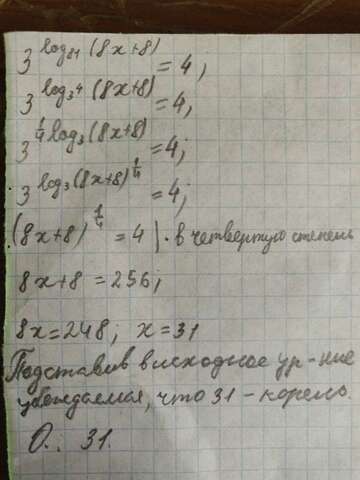 3^{log_{81}(8x+8)} = 4,
3^{log_{3^4}(8x+8)} = 4,
3^{\frac{1}{4}log_3(8x+8)} = 4;
3^{log_3(8x+8)^{\frac{1}{4}}} = 4;
(8x+8)^{\frac{1}{4}} = 4 | · в четвертую степень
8x+8 = 256;
8x=248; x=31
Подставив в исходное ур-ние
убеждаемся, что 31 - корень.
О.: 31.